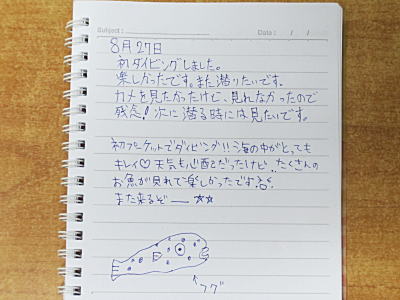 Subject : Date : / /
8月27日
初ダイビングしました。
楽しかったです。また潜りたいです。
カメを見たかったけど、見れなかったので
残念! 次に潜る時には見たいです。
初プーケットでダイビング!! 海の中がとっても
キレイ♡ 天気も心配だったけど、たくさんの
お魚が見れて楽しかったです
また来るぞー ☆☆
フグ